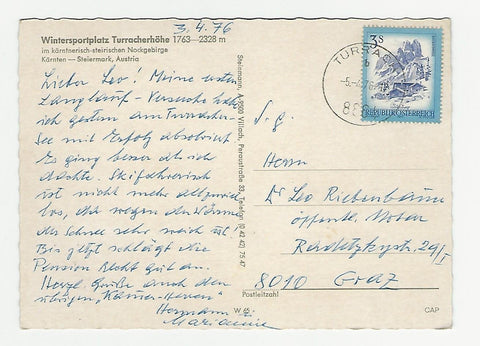 3.4.76
Wintersportplatz Turracherhöhe 1763—2328 m
im kärntnerisch-steirischen Nockgebirge
Kärnten — Steiermark, Austria
Lieber Leo! Meine ersten
Langlauf-Versuche habe
ich gestern am Turracher-
See mit Erfolg absolviert.
Es ging besser als ich
dachte. Skifahrerisch
ist nicht mehr allzuviel
los, da wegen der Wärme
der Schnee sehr weich ist!
Bis jetzt schlägt die
Pension Recht gut an.
Herzl. Grüße auch den
übrigen „Kanzlei-Herren"
Hermann u.
Marianne
Steinmann, A-9500 Villach, Peraustraße 33, Telefon (0 42 42) 75 47
W 65
TURRACH
5.-4.76
3S
REPUBLIK ÖSTERREICH
S.g.
Herrn
Dr Leo Riebenbauer
öffentl. Notar
Radetzkystr. 29/I
8010 Graz
Postleitzahl
CAP